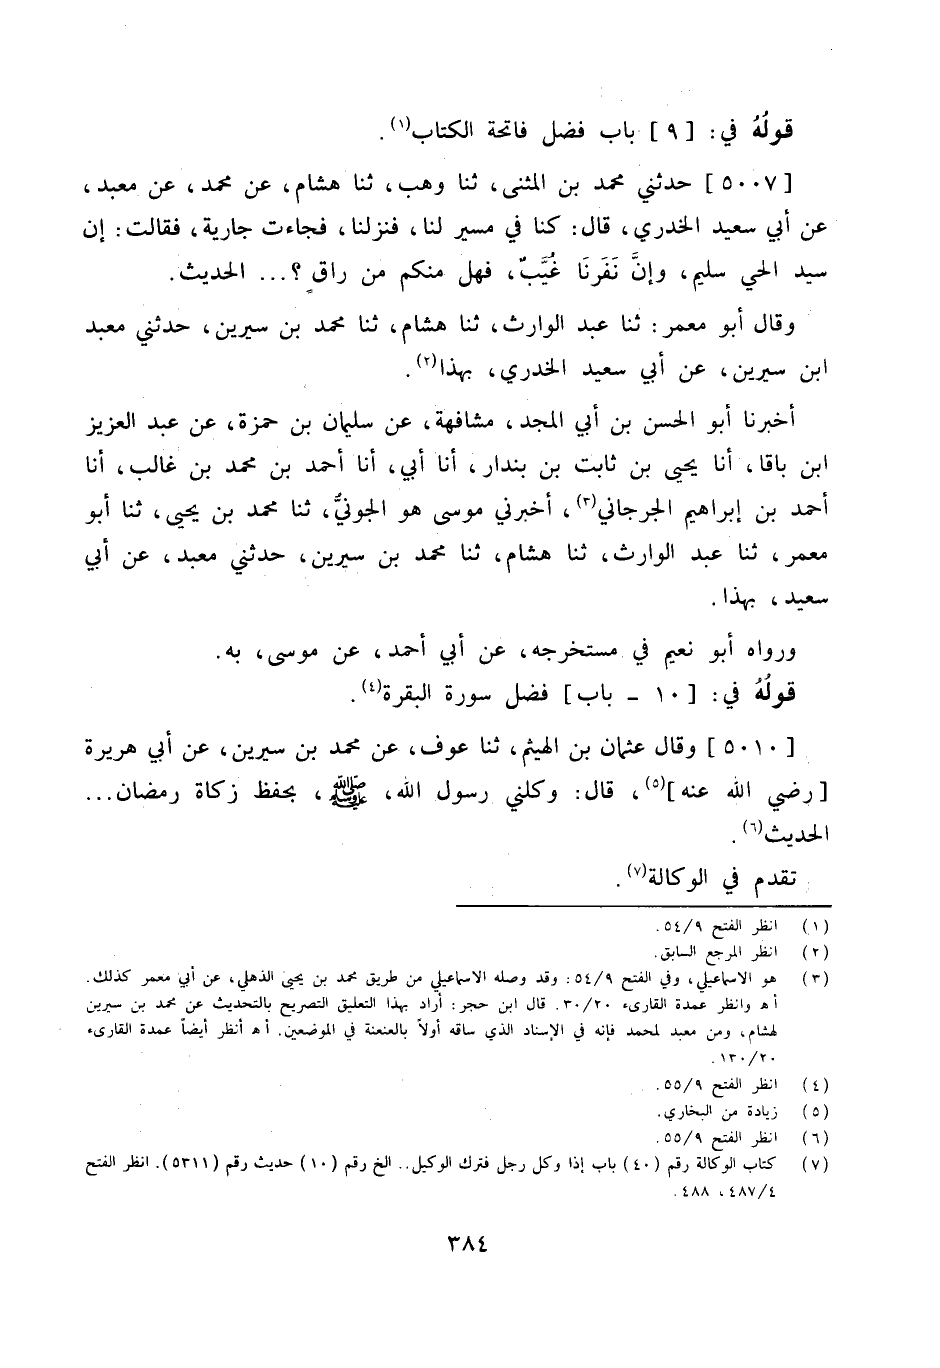 قولُهُ في: [ ٩ ] باب فضل فاتحة الكتاب(١).
[ ٥٠٠٧ ] حدثني محمد بن المثنى، ثنا وهب، ثنا هشام، عن محمد، عن معبد،
عن أبي سعيد الخدري، قال: كنا في مسير لنا، فنزلنا، فجاءت جارية، فقالت: إن
سيد الحي سليم، وإنَّ نَفَرنَا غُيَّبٌ، فهل منكم من راقٍ ؟... الحديث.
وقال أبو معمر: ثنا عبد الوارث، ثنا هشام، ثنا محمد بن سيرين، حدثني معبد
ابن سيرين، عن أبي سعيد الخدري، بهذا(٢).
أخبرنا أبو الحسن بن أبي المجد، مشافهة، عن سليمان بن حمزة، عن عبد العزيز
ابن باقا، أنا يحيى بن ثابت بن بندار، أنا أبي، أنا أحمد بن محمد بن غالب، أنا
أحمد بن إبراهيم الجرجاني(٣)، أخبرني موسى هو الجونيُّ، ثنا محمد بن يحيى، ثنا أبو
معمر، ثنا عبد الوارث، ثنا هشام، ثنا محمد بن سيرين، حدثني معبد، عن أبي
سعيد، بهذا.
ورواه أبو نعيم في مستخرجه، عن أبي أحمد، عن موسى، به.
قولُهُ في: [ ١٠ ـ باب] فضل سورة البقرة(٤).
[ ٥٠١٠ ] وقال عثمان بن الهيثم، ثنا عوف، عن محمد بن سيرين، عن أبي هريرة
[رضي الله عنه](٥)، قال: وكلني رسول الله، ﷺ، بحفظ زكاة رمضان...
الحديث(٦).
تقدم في الوكالة(٧).
(١) انظر الفتح ٥٤/٩.
(٢) انظر المرجع السابق.
(٣) هو الاسماعيلي، وفي الفتح ٥٤/٩: وقد وصله الاسماعيلي من طريق محمد بن يحيى الذهلي، عن أبي معمر كذلك.
أ هـ وانظر عمدة القارىء ٣٠/٢٠. قال ابن حجر: أراد بهذا التعليق التصريح بالتحديث عن محمد بن سيرين
لهشام، ومن معبد لمحمد فإنه في الإسناد الذي ساقه أولاً بالعنعنة في الموضعين. أ هـ أنظر أيضاً عمدة القارىء
١٣٠/٢٠.
(٤) انظر الفتح ٥٥/٩.
(٥) زيادة من البخاري.
(٦) انظر الفتح ٥٥/٩.
(٧) كتاب الوكالة رقم (٤٠) باب إذا وكل رجل فترك الوكيل.. الخ رقم (١٠) حديث رقم (٥٣١١). انظر الفتح
٤٨٧/٤، ٤٨٨.
٣٨٤